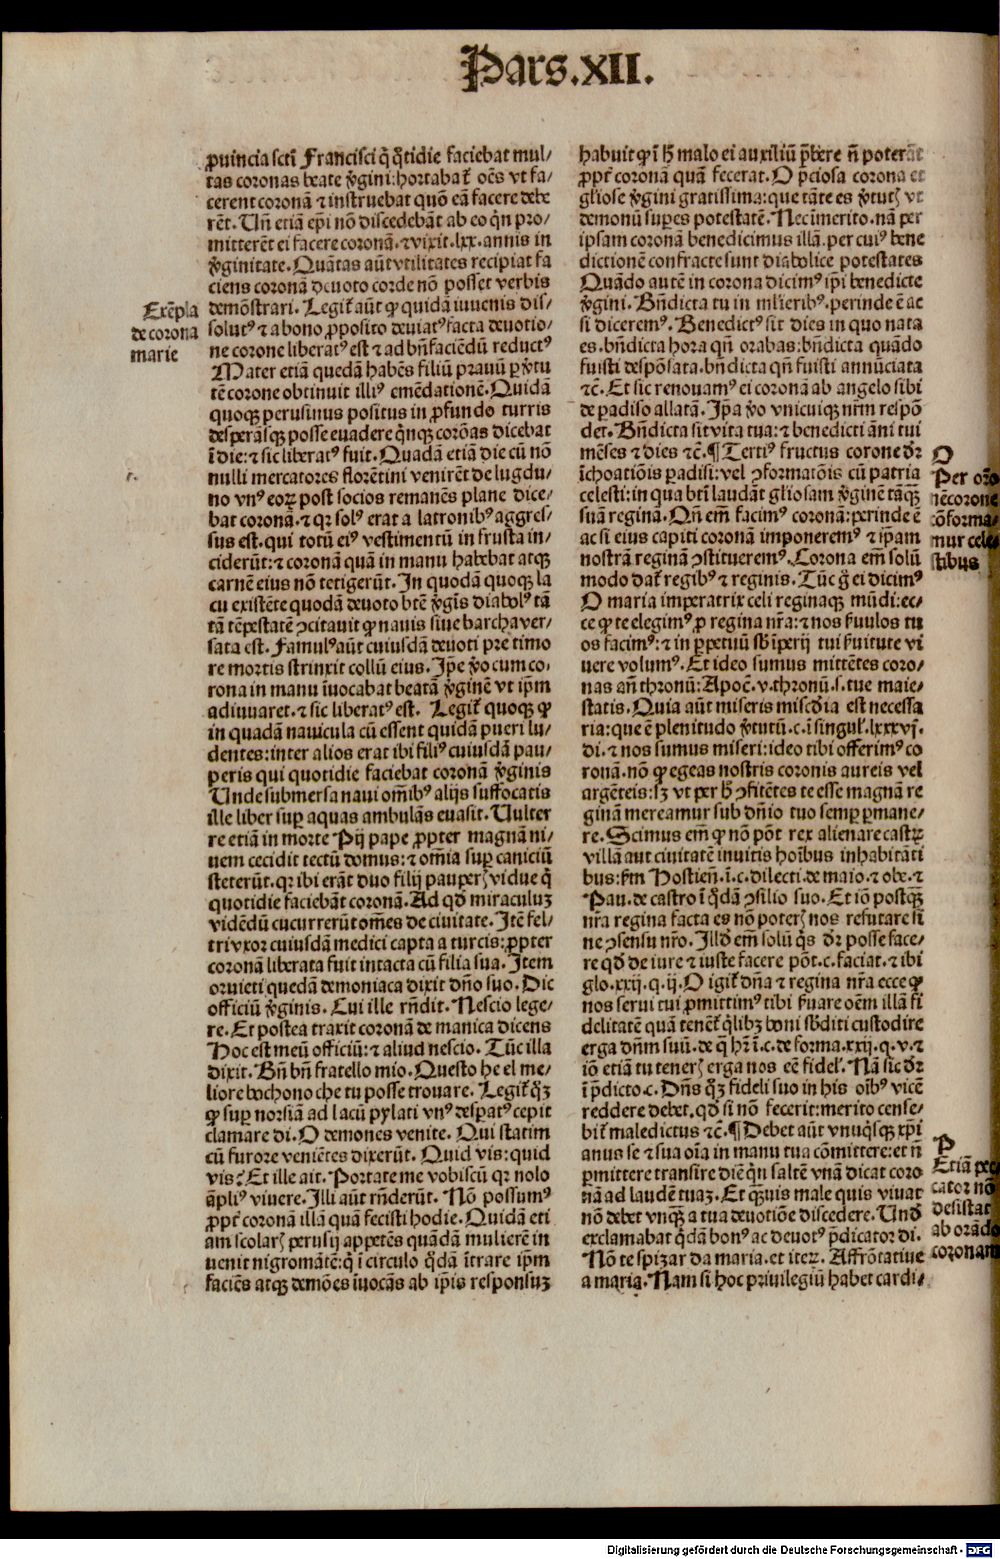 Pars.XII.
ꝓuincia sctī Francisci q̄ q̄tidie faciebat mul⸗
tas coronas beate ꝟgini: hortabat᷑ oēs vt fa⸗
cerent coronā ⁊ instruebat quō eā facere debe
rēt. Un̄ etiā ep̄i nō discedebāt ab eo q̄n pro⸗
mitterēt ei facere coronā. ⁊ vixit .lxx. annis in
ꝟginitate. Quātas aūt vtilitates recipiat fa
ciens coronā deuoto corde nō posset verbis
demōstrari. Legit᷑ aūt ꝙ quidā iuuenis dis⸗
solutꝰ ⁊ a bono ꝓposito deuiatꝰ facta deuotio⸗
ne corone liberatꝰ est ⁊ ad bn̄faciēdū reductꝰ
Mater etiā quedā habēs filiū prauū ꝑ ꝟtu
tē corone obtinuit illiꝰ emēdationē. Quidā
quoqꝫ perusinus positus in ꝓfundo turris
desperāsqꝫ posse euadere q̄nqꝫ corōas dicebat
ī die: ⁊ sic liberatꝰ fuit. Quadā etiā die cū nō
nulli mercatores florētini venirēt de lugdu⸗
no vnꝰ eoꝝ post socios remanēs plane dice⸗
bat coronā. ⁊ qꝛ solꝰ erat a latronibꝰ aggres⸗
sus est. qui totū eiꝰ vestimentū in frusta in⸗
ciderūt: ⁊ coronā quā in manu habebat atqꝫ
carnē eius nō tetigerūt. In quodā quoqꝫ la
cu existēte quodā deuoto btē ꝟgīs diabolꝰ tā
tā tēpestatē ꝯcitauit ꝙ nauis siue barcha ver⸗
sata est. Famulꝰ aūt cuiusdā deuoti pre timo
re mortis strinxit collū eius. Ip̄e ꝟo cum co⸗
rona in manu īuocabat beatā ꝟginē vt ip̄m
adiuuaret. ⁊ sic liberatꝰ est. Legit᷑ quoqꝫ ꝙ
in quadā nauicula cū essent quidā pueri lu⸗
dentes: inter alios erat ibi filiꝰ cuiusdā pau⸗
peris qui quotidie faciebat coronā ꝟginis
Unde submersa naui om̄ibꝰ alijs suffocatis
ille liber suꝑ aquas ambulās euasit. Uulter
re etiā in morte Pij pape ꝓpter magnā ni⸗
uem cecidit tectū domus: ⁊ om̄ia suꝑ caniciū
steterūt. qꝛ ibi erāt duo filij pauperꝭ vidue q̄
quotidie faciebāt coronā. Ad qd̄ miraculuꝫ
vidēdū cucurrerūt om̄es de ciuitate. Itē fel⸗
tri vxor cuiusdā medici capta a turcis: ꝓpter
coronā liberata fuit intacta cū filia sua. Item
oruieti quedā demoniaca dixit dn̄o suo. Dic
officiū ꝟginis. Cui ille rn̄dit. Nescio lege⸗
re. Et postea traxit coronā de manica dicens
Hoc est meū officiū: ⁊ aliud nescio. Tūc illa
dixit. Bn̄ bn̄ fratello mio. Questo he el me⸗
liore bochono che tu posse trouare. Legit᷑ q̄ꝫ
ꝙ suꝑ norsiā ad lacū pylati vnꝰ despatꝰ cepit
clamare di. O demones venite. Qui statim
cū furore veniētes dixerūt. Quid vis: quid
vis? Et ille ait. Portate me vobiscū qꝛ nolo
āpliꝰ viuere. Illi aūt rn̄derūt. Nō possumꝰ
ꝓpt᷑ coronā illā quā fecisti hodie. Quidā eti
am scolarꝭ perusij appetēs quādā mulierē in
uenit nigromātē: q̄ ī circulo q̄dā ītrare ip̄m
faciēs atqꝫ demōes īuocās ab ip̄is responsuꝫ
Exēpla
de corona
marie
habuit ꝙ ī h̄ malo ei auxiliū p̄bere n̄ poterāt
ꝓpt᷑ coronā quā fecerat. O p̄ciosa corona et
gl̄iose ꝟgini gratissima: que tāte es ꝟtutꝭ vt
demonū suꝑes potestatē. Nec īmerito. nā per
ipsam coronā benedicimus illā. per cuiꝰ bene
dictionē confracte sunt diabolice potestates
Quādo autē in corona dicimꝰ ip̄i benedicte
ꝟgini. Bn̄dicta tu in ml̄ieribꝰ. perinde ē ac
si diceremꝰ. Benedictꝰ sit dies in quo nata
es. bn̄dicta hora qn̄ orabas: bn̄dicta quādo
fuisti despōsata. bn̄dicta qn̄ fuisti annūciata
⁊c̄. Et sic renouamꝰ ei coronā ab angelo sibi
de padiso allatā. Ip̄a ꝟo vnicuiqꝫ nr̄m respō
det. Bn̄dicta sit vita tua: ⁊ benedicti āni tui
mēses ⁊ dies ⁊c̄. ¶ Tertiꝰ fructus corone dr̄
īchoatiōis ꝑadisi: vel ꝯformatōis cū patria
celesti: in qua bt̄i laudāt gl̄iosam ꝟginē tāqꝫ
suā reginā. Qn̄ em̄ facimꝰ coronā: perinde ē
ac si eius capiti coronā imponeremꝰ ⁊ ip̄am
nostrā reginā ꝯstitueremꝰ. Corona em̄ solū
modo dat᷑ regibꝰ ⁊ reginis. Tūc ḡ ei dicimꝰ
O maria imperatrix celi reginaqꝫ mūdi: ec⸗
ce ꝙ te elegimꝰ ꝓ regina nr̄a: ⁊ nos ẜuulos tu
os facimꝰ: ⁊ in ꝑpetuū sb̄ īperij tui ẜuitute vi
uere volumꝰ. Et ideo sumus mittētes coro⸗
nas an̄ thronū: Apoc̄. v. thronū .s. tue maie⸗
statis. Quia aūt miseris misc̄dia est necessa
ria: que ē plenitudo ꝟtutū. c. ī singul᷑. lxxxvj.
di. ⁊ nos sumus miseri: ideo tibi offerimꝰ co
ronā. nō ꝙ egeas nostris coronis aureis vel
argēteis: sꝫ vt per h̄ ꝯfitētes te esse magnā re
ginā mereamur sub dn̄io tuo semꝑ ꝑmane⸗
re. Scimus em̄ ꝙ nō pōt rex alienare castꝝ
villā aut ciuitatē inuitis hoībus inhabitāti
bus: ẜm Hostien̄. ī. c. dilecti. de maio. ⁊ obe. ⁊
Pau. de castro ī q̄dā ꝯsilio suo. Et iō postqꝫ
nr̄a regina facta es nō poterꝭ nos refutare si
ne ꝯsensu nr̄o. Illd̄ em̄ solū q̄s dr̄ posse face⸗
re qd̄ de iure ⁊ iuste facere pōt. c. faciat. ⁊ ibi
glo. xxij. q. ij. O igit᷑ dn̄a ⁊ regina nr̄a ecce ꝙ
nos serui tui ꝓmittimꝰ tibi ẜuare oēm illā fi
delitatē quā tenet᷑ q̄libꝫ boni sb̄diti custodire
erga dn̄m suū. de q̄ hr̄ ī. c. de forma. xxij. q. v. ⁊
iō etiā tu tenerꝭ erga nos eē fidel᷑. Nā sic dr̄
ī p̄dicto. c. Dn̄s q̄ꝫ fideli suo in his oībꝰ vicē
reddere debet. qd̄ si nō fecerit: merito cense⸗
bit᷑ maledictus ⁊c̄. ¶ Debet aūt vnuq̄sqꝫ xp̄i
anus se ⁊ sua oīa in manu tua cōmittere: et n̄
ꝑmittere transire diē q̄n saltē vnā dicat coro
nā ad laudē tuaꝫ. Et qꝫuis male quis viuat
nō debet vnqꝫ a tua deuotiōe discedere. Und̄
exclamabat q̄dā bonꝰ ac deuotꝰ p̄dicator di.
Nō te spizar da maria. et iteꝝ. Affrōtatiue
a maria. Nam si hoc priuilegiū habet cardi⸗
O
Per orō
nē corone
cōforma⸗
mur cele
stibus
P
Etiā pec
cator nō
desistat
ab orādo
coronam
Digitalisierung gefördert durch die Deutsche Forschungsgemeinschaft - DFG